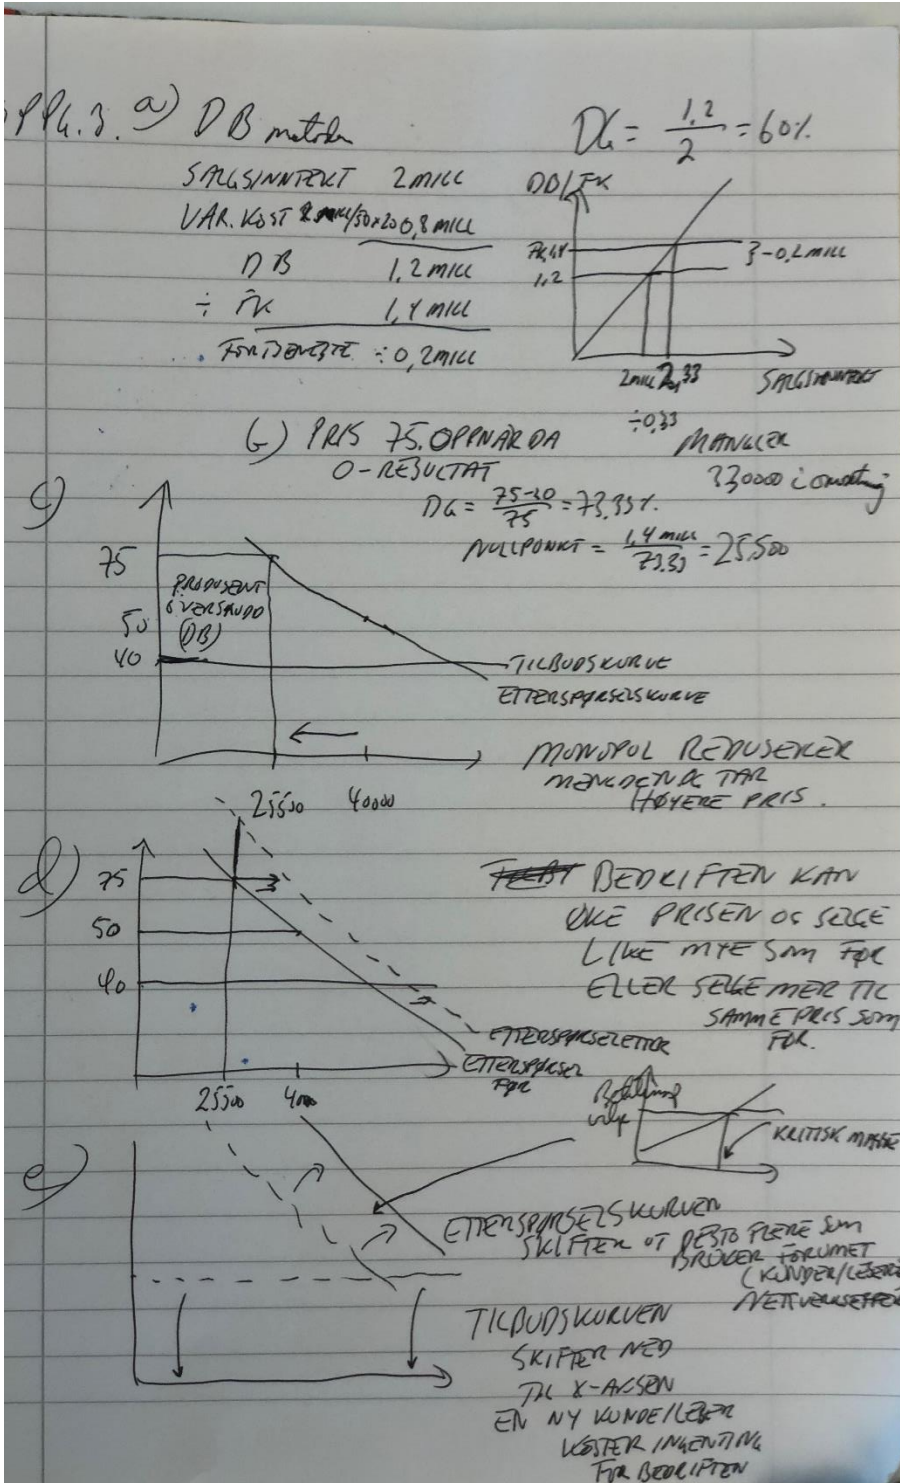 OPPG. 3. a) DB metoden
SALGSINNTEKT 2 MILL
VAR. KOST /50×20 0,8 MILL
DB 1,2 MILL
÷ FK 1,4 MILL
FORTJENESTE ÷0,2 MILL
DG = 1,2 / 2 = 60%
DB/FK
FK 1,4
1,2
} -0,2 MILL
2 MILL 2,33
SALGSINNTEKT
÷0,33
MANGLER
330000 i omsetning
b) PRIS 75. OPPNÅR DA
0-RESULTAT
DG = 75-20 / 75 = 73,33%
NULLPUNKT = 1,4 MILL / 73,33 = 25,500
c)
75
50
40
PRODUSENT
OVERSKUDD
(DB)
TILBUDSKURVE
ETTERSPØRSELSKURVE
25500 40000
MONOPOL REDUSERER
MENGDEN OG TAR
HØYERE PRIS.
d)
75
50
40
ETTERSPØRSEL ETTER
ETTERSPØRSEL
FØR
25500
BEDRIFTEN KAN
ØKE PRISEN OG SELGE
LIKE MYE SOM FØR
ELLER SELGE MER TIL
SAMME PRIS SOM
FØR.
e)
KRITISK MASSE
ETTERSPØRSELSKURVEN
SKIFTER UT DESTO FLERE SOM
BRUKER FORUMET
(KUNDER/LESERE
NETTVERKSEFFE
TILBUDSKURVEN
SKIFTER NED
TIL X-AKSEN
EN NY KUNDE/LESER
KOSTER INGENTING
FOR BEDRIFTEN